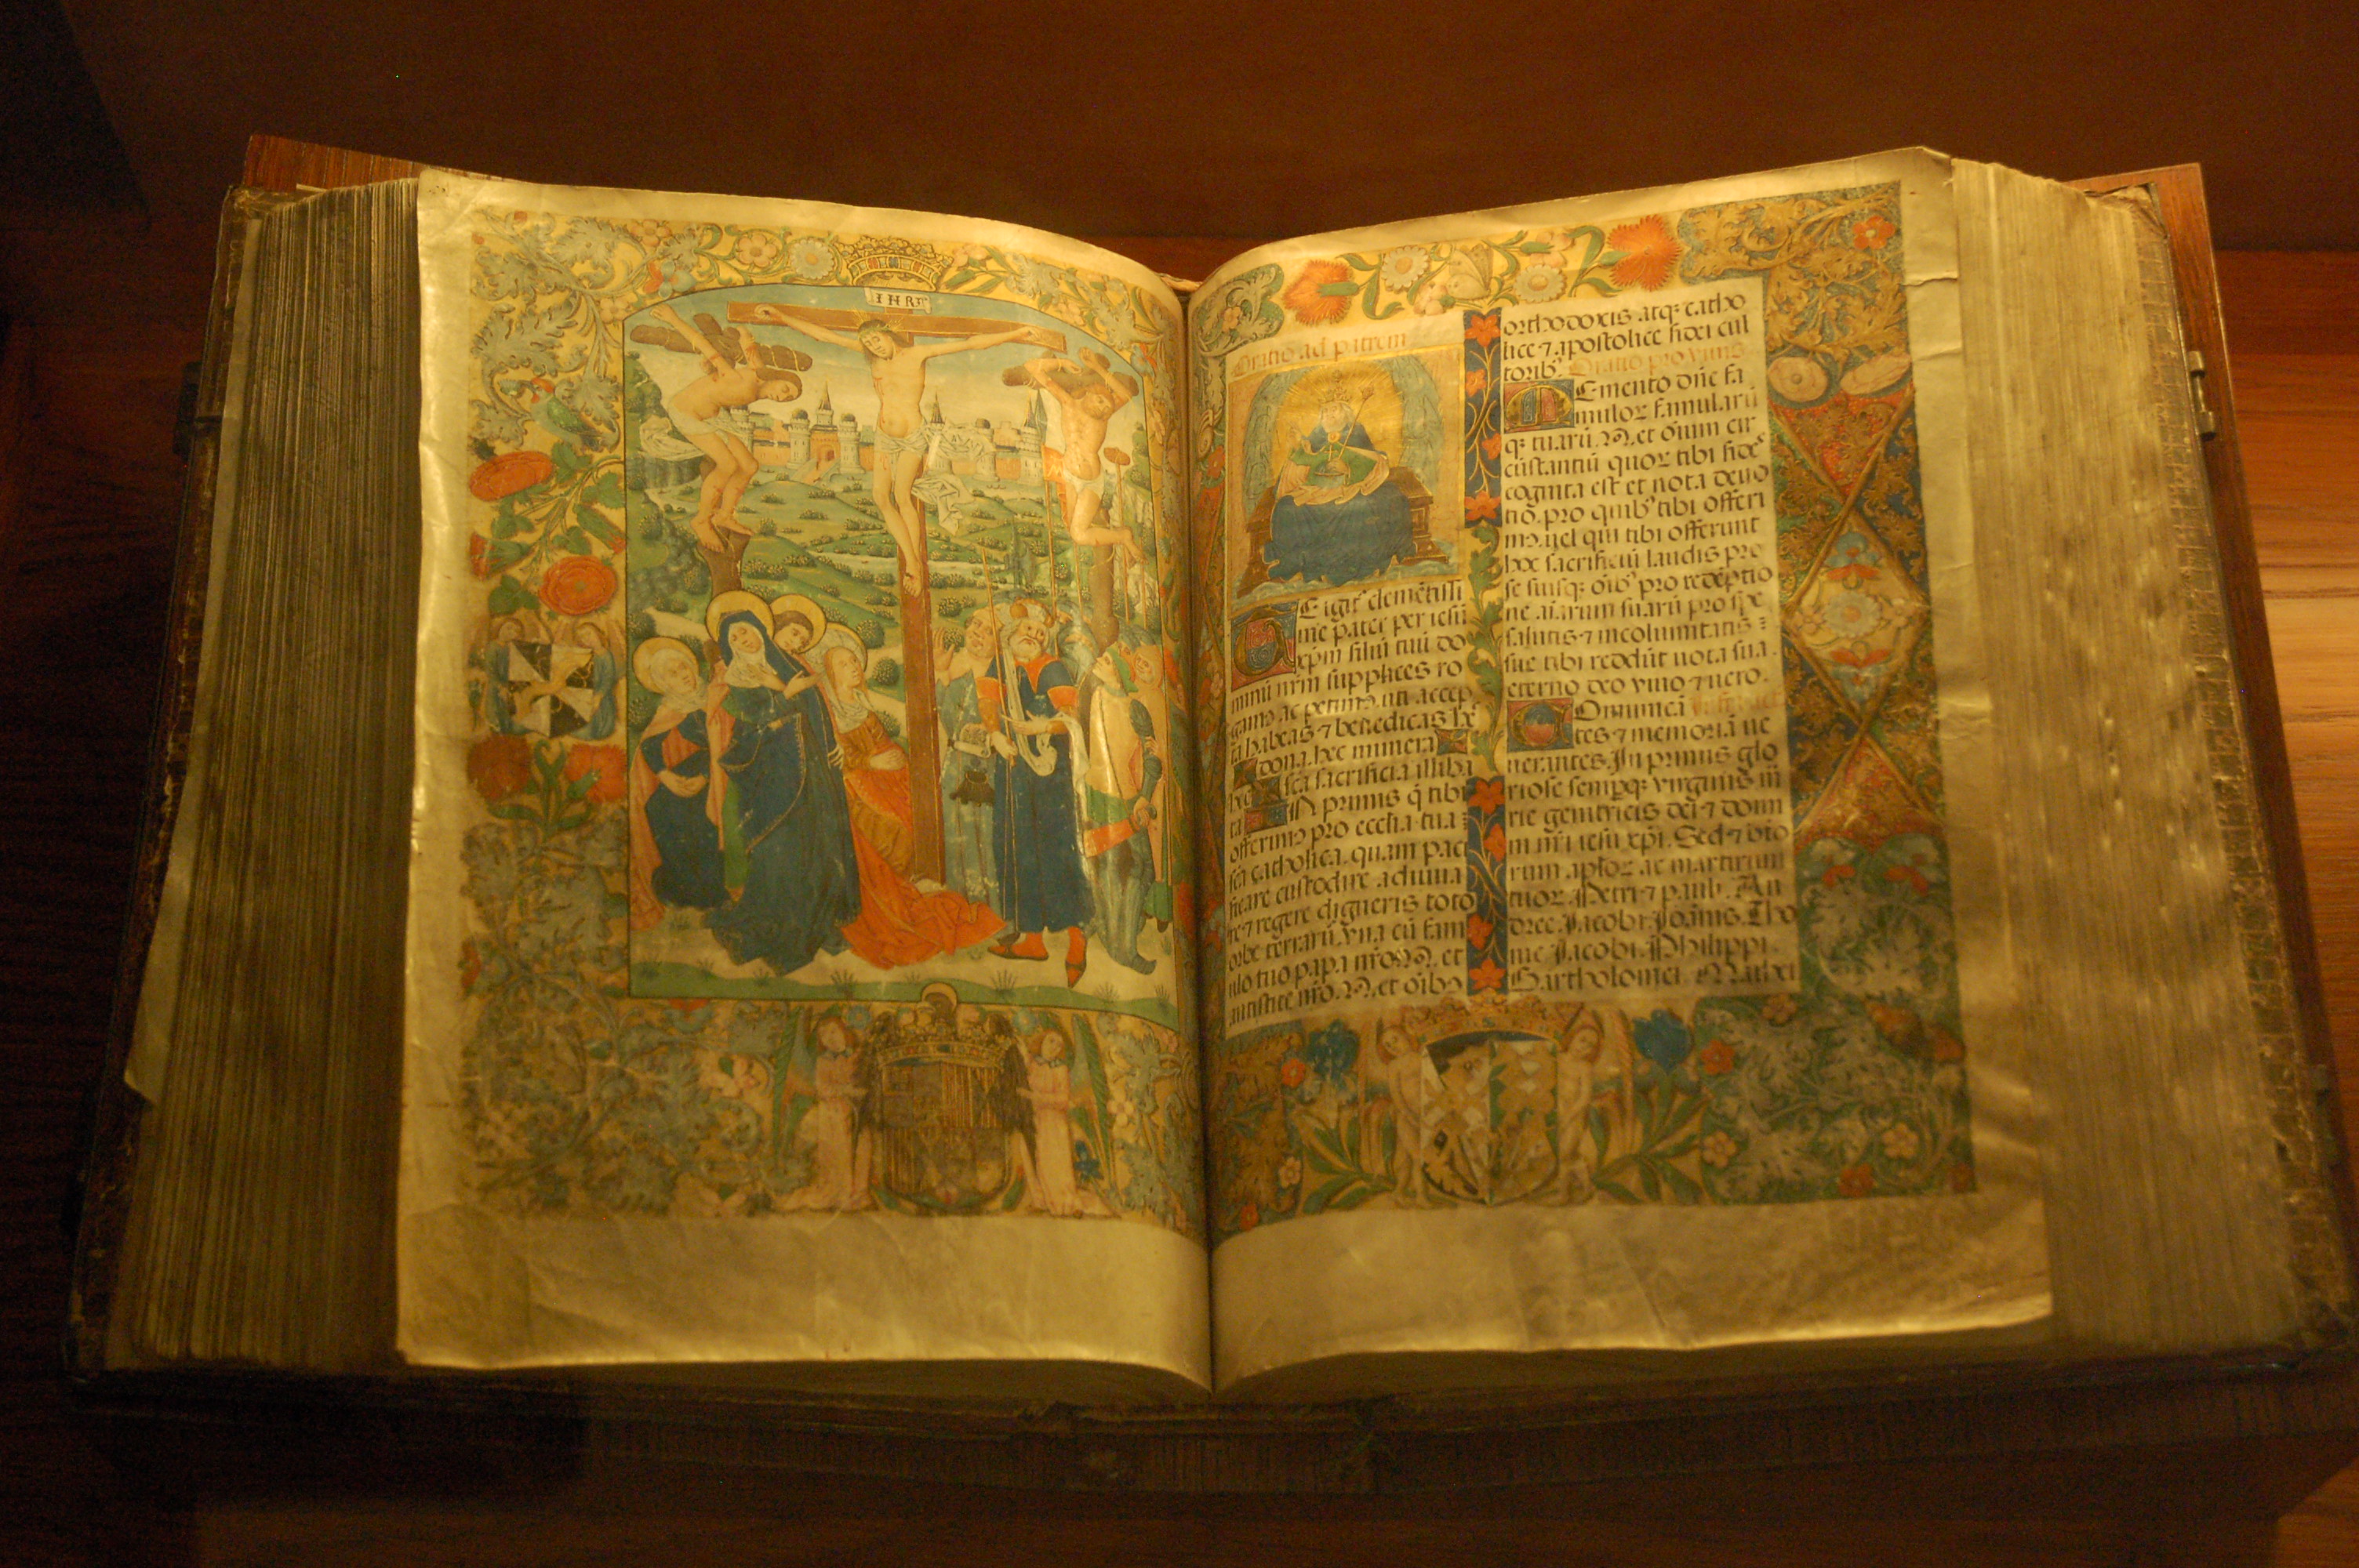 INRI
Oratio ad patrem
TE igit˜ clemētissi
me pater per iesū
xp̄m filiū tuū do
minū nr̄m supplices ro
gam᷒ ac petim᷒. uti accep
ta habeas ⁊ benedicas hec
dona. hec munera
hec sc̄a sacrificia illiba
ta IN primis q̄ tibi
offerim᷒ pro ecclia tua
sc̄a catholica. quam paci
ficare custodire aduna
re ⁊ regere digneris toto
orbe terrarū. vna cū fam
ulo tuo papa nr̄o .N. et
antistite nr̄o .N. et oībꝫ
orthodoxis atqꝫ catho
lice ⁊ apostolice fidei cul
toribꝫ. Oratio pro viuis
MEmento dn̄e fa
muloꝝ famularū
qꝫ tuarū .N. et oīum cir
cūstantiū quoꝝ tibi fides
cognita est et nota deuo
tio. pro quibꝫ tibi offeri
m᷒. uel qui tibi offerunt
hoc sacrificiū laudis pro
se suisqꝫ oībꝫ pro redēptio
ne aīarum suarū pro spe
salutis ⁊ incolumitatis
sue tibi reddūt uota sua.
eterno deo viuo ⁊ uero.
COmmunicā
tes ⁊ memoriā ue
nerantes. In primis glo
riose semperqꝫ virginis m̄
rie genitricis dei ⁊ domi
ni nr̄i iesu xp̄i. Sed ⁊ bt̄o
rum apl̄oꝝ ac martirum
tuoꝝ Petri ⁊ pauli. An
dree. Jacobi. Joānis. Tho
me Jacobi. Philippi.
Bartholomei. Mathei